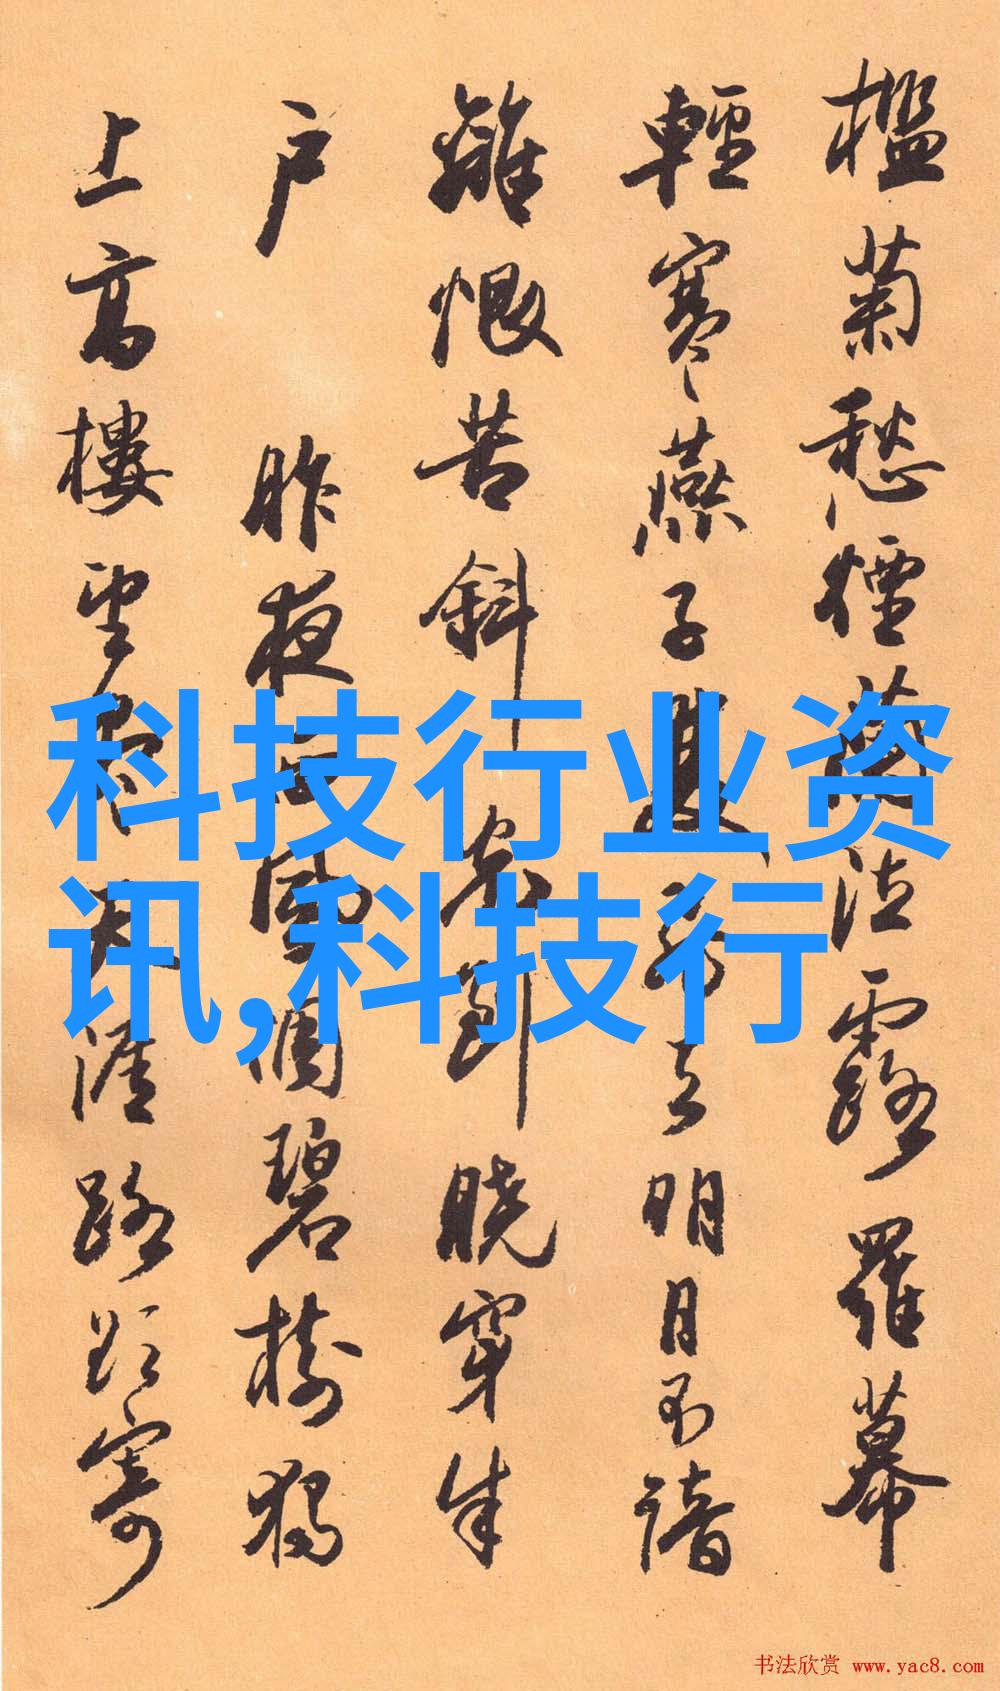 檻菊愁煙蘭泣露羅幕
輕寒燕子雙飛去明月不諳
離恨苦斜光到曉穿朱
户 昨夜西風凋碧樹獨
上高樓望盡天涯路欲寄
科技行业资
讯,科技行
书法欣赏 www.yac8.com